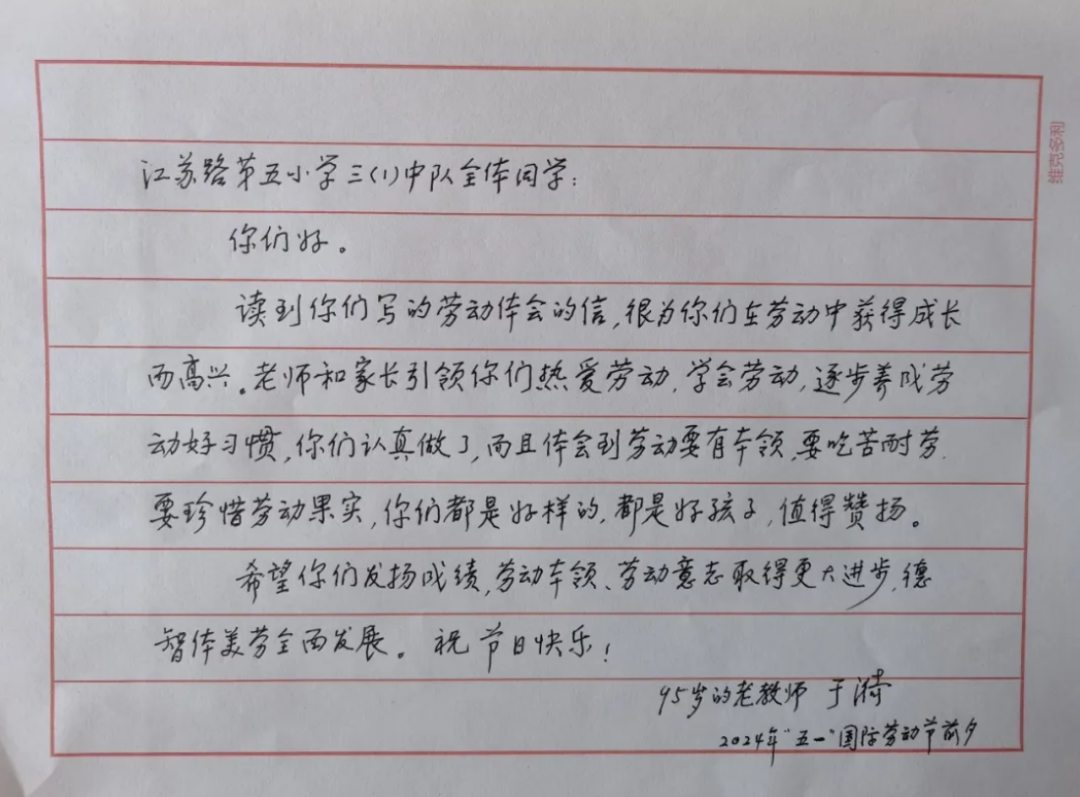 江苏路第五小学三(1)中队全体同学：
你们好。
读到你们写的劳动体会的信，很为你们在劳动中获得成长
而高兴。老师和家长引领你们热爱劳动，学会劳动，逐步养成劳
动好习惯，你们认真做了，而且体会到劳动要有本领，要吃苦耐劳，
要珍惜劳动果实，你们都是好样的，都是好孩子，值得赞扬。
希望你们发扬成绩，劳动本领、劳动意志取得更大进步，德
智体美劳全面发展。祝节日快乐！
95岁的老教师 于漪
2024年"五一"国际劳动节前夕
维克多利